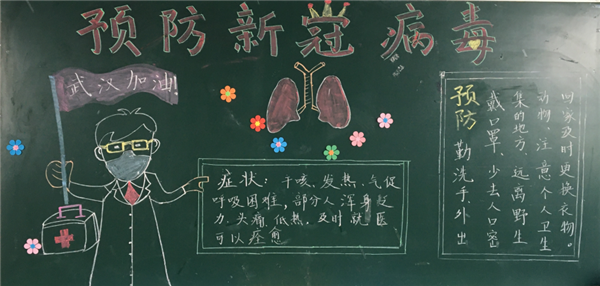 预防新冠病毒
武汉加油!
症状：干咳、发热、气促
呼吸困难，部分人浑身乏
力、头痛低热，及时就医
可以痊愈
预防 勤洗手外出
戴口罩、少去人口密
集的地方、远离野生
动物、注意个人卫生
回家及时更换衣物。